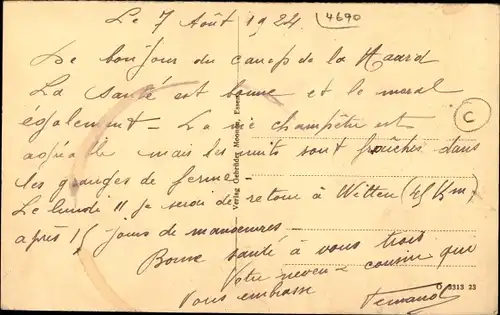 Le 7 Août 1924
4690
Le bonjour du camp de la Haard
La santé est bonne et le moral
également – La vie champêtre est
agréable mais les nuits sont fraîches dans
les granges de ferme
Le lundi 11 je serai de retour à Witten (45 Km)
après 15 jours de manoeuvres –
Bonne santé à vous trois
Votre neveu & cousin qui
Vous embrasse Fernand
C
Verlag Gebrüder Essen
O 3313 23